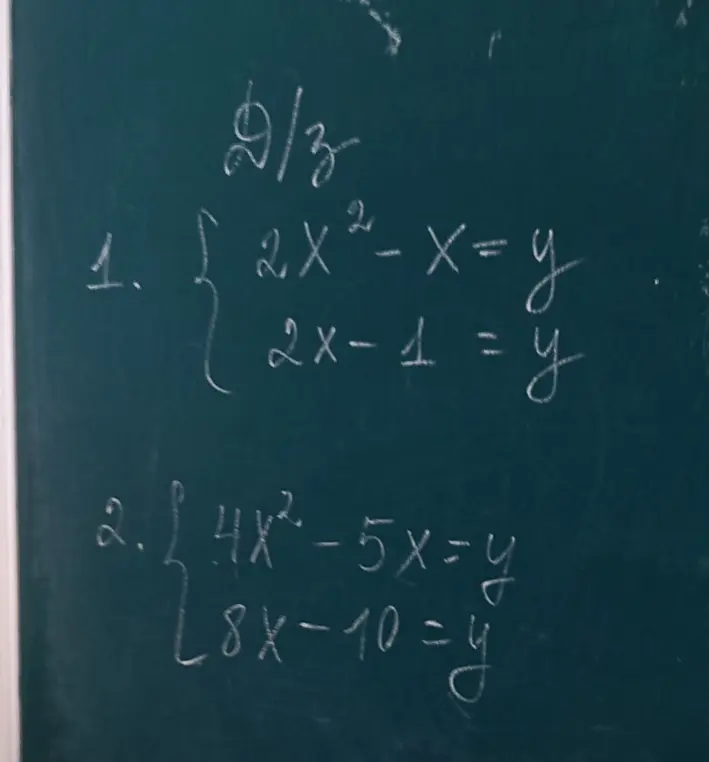 Д/з
1. { 2x² - x = y
2x - 1 = y
2. { 4x² - 5x = y
8x - 10 = y